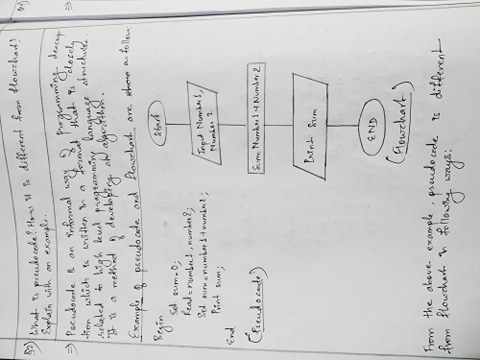 Q2) What is pseudocode? How it is different from flowchart?
Explain with an example.
⇒) Pseudocode is an informal way of programming descrip
tion which is written in a format that is closely
related to high level programming language structures.
It is a method of developing an algorithm.
Example of pseudocode and flowchart are as follow.
Begin
Set sum=0;
Read=number1, number2;
Set sum=number1+number2;
Print sum;
End
(Pseudocode)
Start
Input Number1,
Number 2
Sum= Number1+Number2
Print Sum
END
(Flowchart)
From the above example, pseudocode is different
from flowchart in following ways: